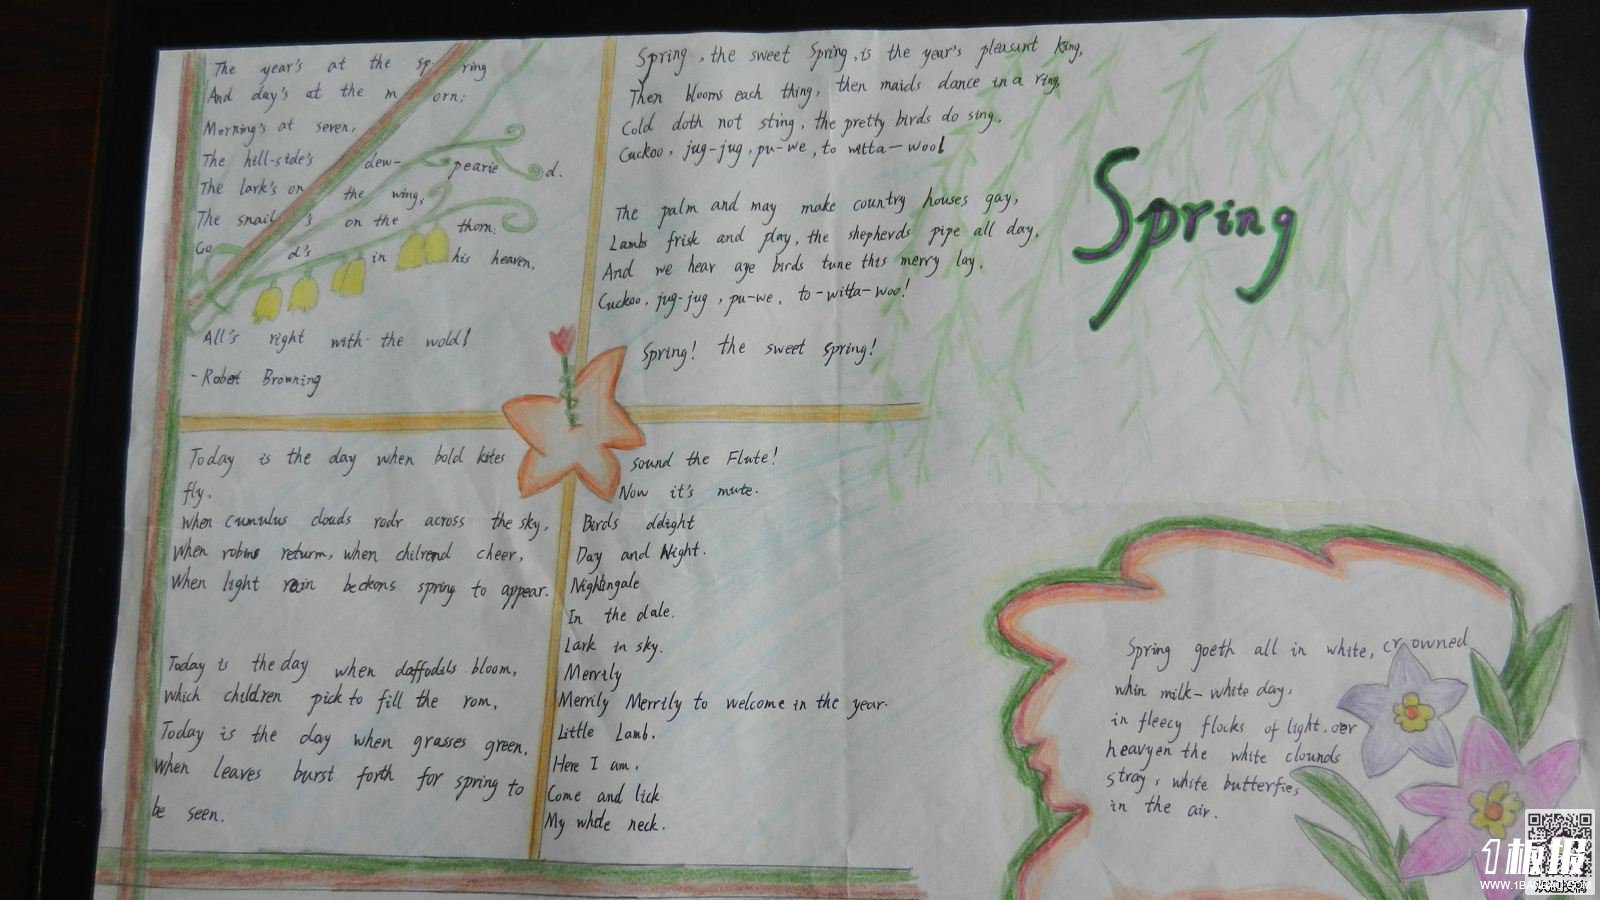 The year's at the sp ring
And day's at the m orn;
Morning's at seven,
The hill-side's dew- pearie d.
The lark's on the wing,
The snail 's on the thorn;
Go d's in his heaven,
All's right with the wold!
- Robert Browning
Spring, the sweet Spring, is the year's pleasant king,
Then blooms each thing, then maids dance in a ring,
Cold doth not sting, the pretty birds do sing,
Cuckoo, jug-jug, pu-we, to witta-woo!
The palm and may make country houses gay,
Lambs frisk and play, the shepherds pipe all day,
And we hear aye birds tune this merry lay,
Cuckoo, jug-jug, pu-we, to-witta-woo!
Spring! the sweet spring!
Spring
Today is the day when bold kites
fly.
When cumulus clouds rodr across the sky,
When robins returm, when chilrend cheer,
When light rain beckons spring to appear.
Today is the day when daffodils bloom,
which children pick to fill the rom,
Today is the day when grasses green,
When leaves burst forth for spring to
be seen.
sound the Flute!
Now it's mute.
Birds delight
Day and Night.
Nightingale
In the dale.
Lark in sky.
Merrily
Merrily Merrily to welcome in the year.
Little Lamb.
Here I am,
Come and lick
My white neck.
Spring goeth all in white, crowned
whin milk-white day,
in fleecy flocks of light, oer
heavyen the white clounds
stray, white butterfies
in the air.
1板报
WWW.1BANBAO.COM
欢迎投稿